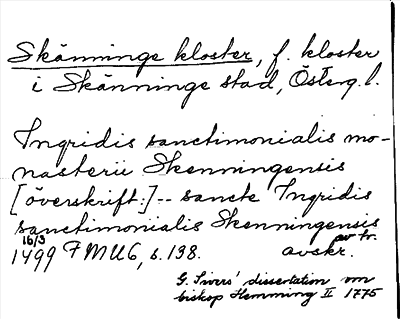 Skänninge kloster, f. kloster
i Skänninge stad, Österg.l.
Ingridis sanctimonialis mo-
nasterii Skenningensis
[överskrift:]-- sancte Ingridis
sanctimonialis Skenningensis
16/3 av tr.
1499 FMU6, s. 198. avskr.
G. Sivers' dissertation om
biskop Hemming II 1775